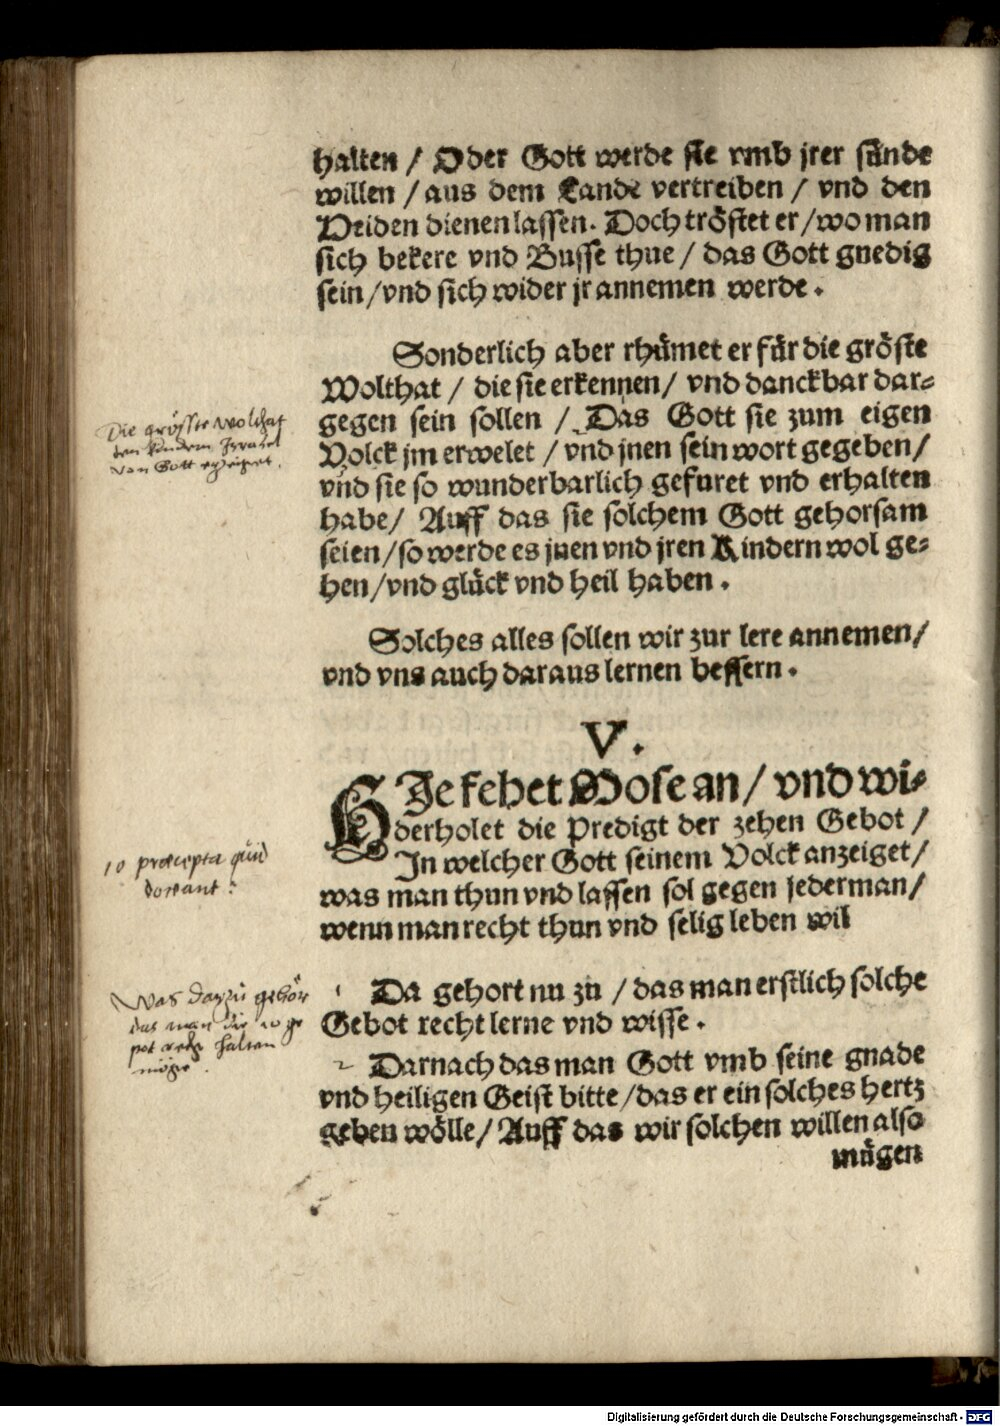 halten / Oder Gott werde sie vmb jrer sünde
willen / aus dem Lande vertreiben / vnd den
Heiden dienen lassen. Doch tröstet er / wo man
sich bekere vnd Busse thue / das Gott gnedig
sein / vnd sich wider jr annemen werde.
Sonderlich aber rhümet er für die gröste
Wolthat / die sie erkennen / vnd danckbar dar=
gegen sein sollen / Das Gott sie zum eigen
Volck jm erwelet / vnd jnen sein wort gegeben /
vnd sie so wunderbarlich gefuret vnd erhalten
habe / Auff das sie solchem Gott gehorsam
seien / so werde es jnen vnd jren Kindern wol ge=
hen / vnd glück vnd heil haben.
Die grösste Wolthat
den Kindern Israhel
von Gott erzeiget.
Solches alles sollen wir zur lere annemen /
vnd vns auch daraus lernen bessern.
V.
HIe fehet Mose an / vnd wi=
derholet die Predigt der zehen Gebot /
In welcher Gott seinem Volck anzeiget /
was man thun vnd lassen sol gegen jederman /
wenn man recht thun vnd selig leben wil
10 præcepta quid
doceant:
1 Da gehort nu zu / das man erstlich solche
Gebot recht lerne vnd wisse.
2 Darnach das man Gott vmb seine gnade
vnd heiligen Geist bitte / das er ein solches hertz
geben wölle / Auff das wir solchen willen also
mügen
Was dazu gehör
das man die 10 ge
pot recht halten
möge.
Digitalisierung gefördert durch die Deutsche Forschungsgemeinschaft - DFG